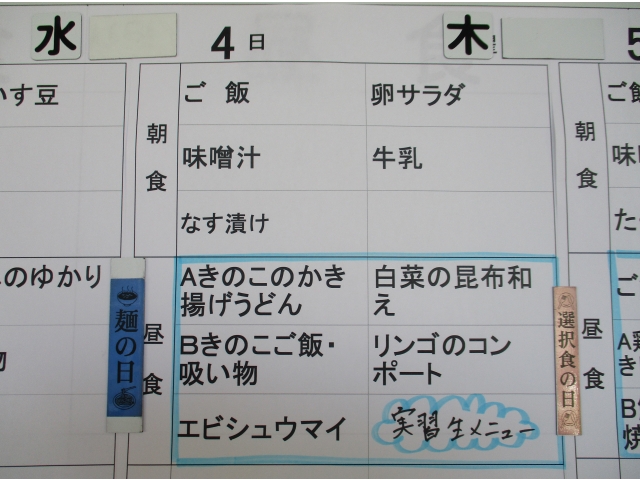 水
4日
木
5
いす豆
朝食
ご飯
卵サラダ
味噌汁
牛乳
なす漬け
朝食
ご飯
味
た
のゆかり
物
麺の日
昼食
Aきのこのかき
揚げうどん
白菜の昆布和
え
Bきのこご飯・
吸い物
リンゴのコン
ポート
エビシュウマイ
実習生メニュー
選択食の日
昼食
ご
A鶏
き
B
焼